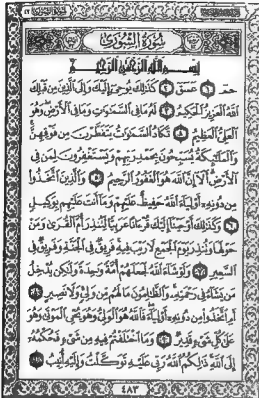 سُورَةُ الشُّورَىٰ
بِسْمِ اللَّهِ الرَّحْمَٰنِ الرَّحِيمِ
حمٓ ١ عٓسٓقٓ ٢ كَذَٰلِكَ يُوحِىٓ إِلَيْكَ وَإِلَى ٱلَّذِينَ مِن قَبْلِكَ
ٱللَّهُ ٱلْعَزِيزُ ٱلْحَكِيمُ ٣ لَهُۥ مَا فِى ٱلسَّمَٰوَٰتِ وَمَا فِى ٱلْأَرْضِ وَهُوَ
ٱلْعَلِىُّ ٱلْعَظِيمُ ٤ تَكَادُ ٱلسَّمَٰوَٰتُ يَتَفَطَّرْنَ مِن فَوْقِهِنَّ
وَٱلْمَلَٰٓئِكَةُ يُسَبِّحُونَ بِحَمْدِ رَبِّهِمْ وَيَسْتَغْفِرُونَ لِمَن فِى
ٱلْأَرْضِ أَلَآ إِنَّ ٱللَّهَ هُوَ ٱلْغَفُورُ ٱلرَّحِيمُ ٥ وَٱلَّذِينَ ٱتَّخَذُوا۟
مِن دُونِهِۦٓ أَوْلِيَآءَ ٱللَّهُ حَفِيظٌ عَلَيْهِمْ وَمَآ أَنتَ عَلَيْهِم بِوَكِيلٍ
٦ وَكَذَٰلِكَ أَوْحَيْنَآ إِلَيْكَ قُرْءَانًا عَرَبِيًّا لِّتُنذِرَ أُمَّ ٱلْقُرَىٰ وَمَنْ
حَوْلَهَا وَتُنذِرَ يَوْمَ ٱلْجَمْعِ لَا رَيْبَ فِيهِ فَرِيقٌ فِى ٱلْجَنَّةِ وَفَرِيقٌ فِى
ٱلسَّعِيرِ ٧ وَلَوْ شَآءَ ٱللَّهُ لَجَعَلَهُمْ أُمَّةً وَٰحِدَةً وَلَٰكِن يُدْخِلُ
مَن يَشَآءُ فِى رَحْمَتِهِۦ وَٱلظَّٰلِمُونَ مَا لَهُم مِّن وَلِىٍّ وَلَا نَصِيرٍ ٨
أَمِ ٱتَّخَذُوا۟ مِن دُونِهِۦٓ أَوْلِيَآءَ فَٱللَّهُ هُوَ ٱلْوَلِىُّ وَهُوَ يُحْىِ ٱلْمَوْتَىٰ وَهُوَ
عَلَىٰ كُلِّ شَىْءٍ قَدِيرٌ ٩ وَمَا ٱخْتَلَفْتُمْ فِيهِ مِن شَىْءٍ فَحُكْمُهُۥٓ
إِلَى ٱللَّهِ ذَٰلِكُمُ ٱللَّهُ رَبِّى عَلَيْهِ تَوَكَّلْتُ وَإِلَيْهِ أُنِيبُ ١٠
٤٨٣